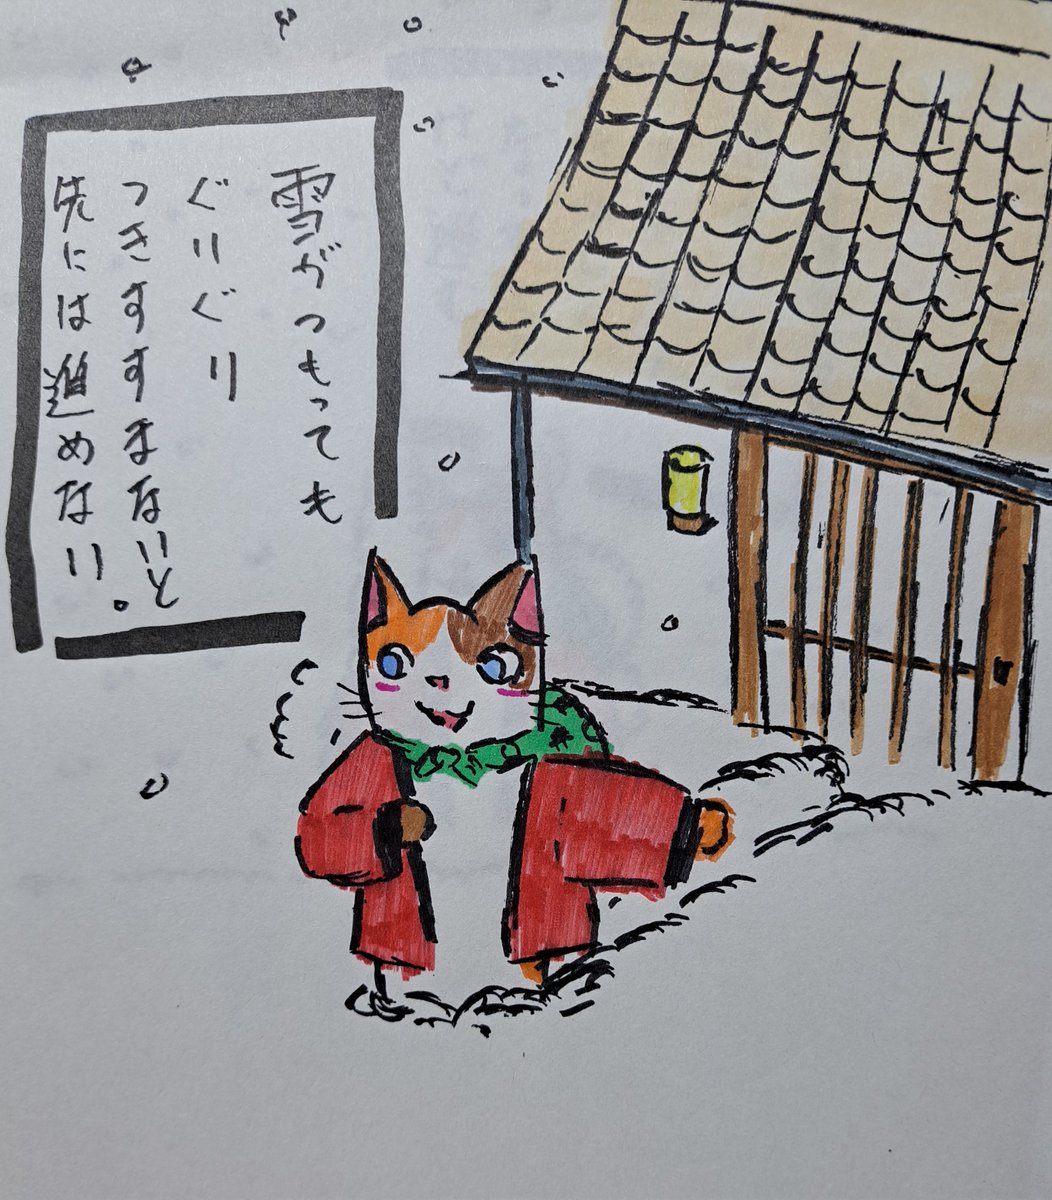 雪がつもっても
ぐりぐり
つきすすまないと
先には進めない。